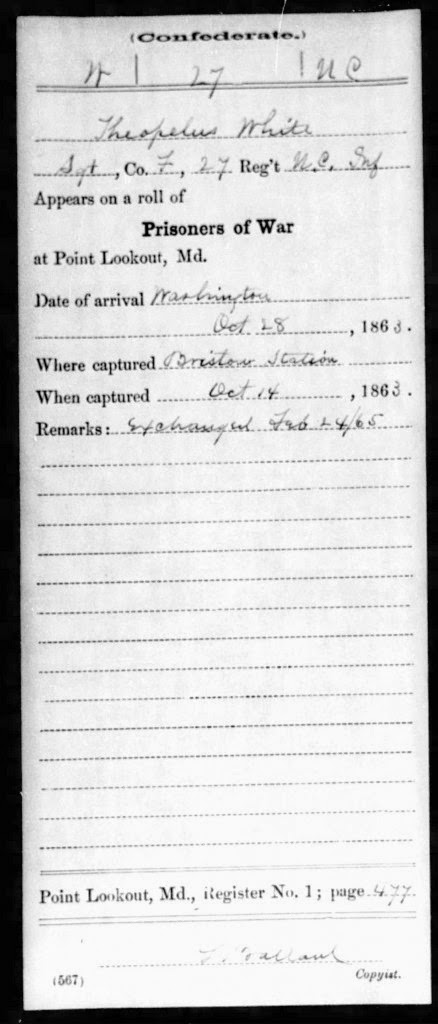 (Confederate.)
W | 27 | N C
Theopelus White
Sgt, Co. F, 27 Reg't N.C. Inf
Appears on a roll of
Prisoners of War
at Point Lookout, Md.
Date of arrival Washington
Oct 28, 1863.
Where captured Bristow Station
When captured Oct 14, 1863.
Remarks: Exchanged Feb 24/65
Point Lookout, Md., Register No. 1; page 477
(567) Copyist.